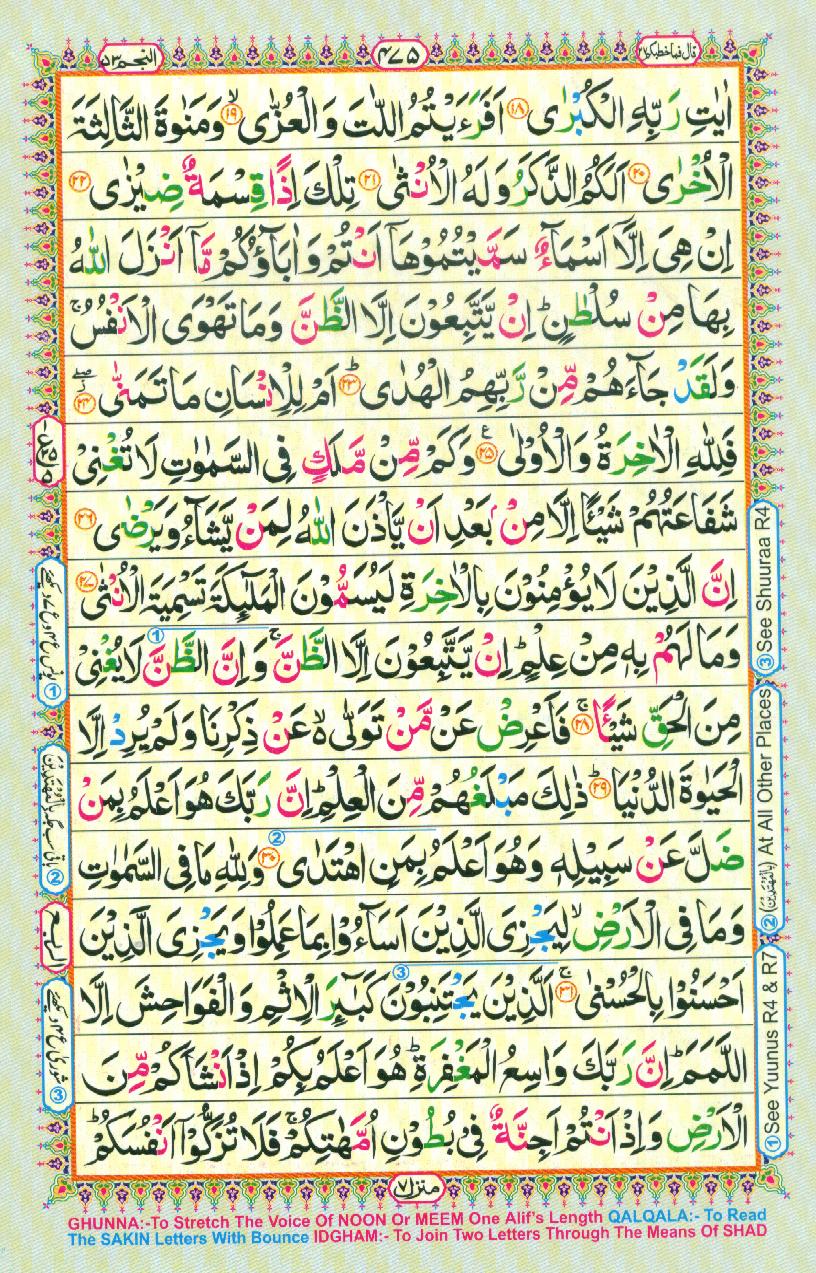 قال فما خطبكم ٢٧
٤٧٥
النجم ٥٣
اٰيٰتِ رَبِّهِ الْكُبْرٰى ۝١٨ اَفَرَءَيْتُمُ اللّٰتَ وَالْعُزّٰى ۙ۝١٩ وَمَنٰوةَ الثَّالِثَةَ
الْاُخْرٰى ۝٢٠ اَلَكُمُ الذَّكَرُ وَلَهُ الْاُنْثٰى ۝٢١ تِلْكَ اِذًا قِسْمَةٌ ضِيْزٰى ۝٢٢
اِنْ هِىَ اِلَّاۤ اَسْمَآءٌ سَمَّيْتُمُوْهَاۤ اَنْتُمْ وَاٰبَآؤُكُمْ مَّاۤ اَنْزَلَ اللّٰهُ
بِهَا مِنْ سُلْطٰنٍ ؕ اِنْ يَّتَّبِعُوْنَ اِلَّا الظَّنَّ وَمَا تَهْوَى الْاَنْفُسُ ۚ
وَلَقَدْ جَآءَهُمْ مِّنْ رَّبِّهِمُ الْهُدٰى ؕ۝٢٣ اَمْ لِلْاِنْسَانِ مَا تَمَنّٰى ۝٢٤
فَلِلّٰهِ الْاٰخِرَةُ وَالْاُوْلٰى ۝٢٥ وَكَمْ مِّنْ مَّلَكٍ فِى السَّمٰوٰتِ لَا تُغْنِىْ
شَفَاعَتُهُمْ شَيْـًٔا اِلَّا مِنْۢ بَعْدِ اَنْ يَّاْذَنَ اللّٰهُ لِمَنْ يَّشَآءُ وَيَرْضٰى ۝٢٦
اِنَّ الَّذِيْنَ لَا يُؤْمِنُوْنَ بِالْاٰخِرَةِ لَيُسَمُّوْنَ الْمَلٰٓئِكَةَ تَسْمِيَةَ الْاُنْثٰى ۝٢٧
وَمَا لَهُمْ بِهٖ مِنْ عِلْمٍ ؕ اِنْ يَّتَّبِعُوْنَ اِلَّا الظَّنَّ ۚ وَاِنَّ الظَّنَّ لَا يُغْنِىْ
مِنَ الْحَقِّ شَيْـًٔا ۚ۝٢٨ فَاَعْرِضْ عَنْ مَّنْ تَوَلّٰى ۙ عَنْ ذِكْرِنَا وَلَمْ يُرِدْ اِلَّا
الْحَيٰوةَ الدُّنْيَا ؕ۝٢٩ ذٰلِكَ مَبْلَغُهُمْ مِّنَ الْعِلْمِ ؕ اِنَّ رَبَّكَ هُوَ اَعْلَمُ بِمَنْ
ضَلَّ عَنْ سَبِيْلِهٖ وَهُوَ اَعْلَمُ بِمَنِ اهْتَدٰى ۝٣٠ وَلِلّٰهِ مَا فِى السَّمٰوٰتِ
وَمَا فِى الْاَرْضِ ۙ لِيَجْزِىَ الَّذِيْنَ اَسَآءُوْا بِمَا عَمِلُوْا وَيَجْزِىَ الَّذِيْنَ
اَحْسَنُوْا بِالْحُسْنٰى ۚ۝٣١ اَلَّذِيْنَ يَجْتَنِبُوْنَ كَبٰٓئِرَ الْاِثْمِ وَالْفَوَاحِشَ اِلَّا
اللَّمَمَ ؕ اِنَّ رَبَّكَ وَاسِعُ الْمَغْفِرَةِ ؕ هُوَ اَعْلَمُ بِكُمْ اِذْ اَنْشَاَكُمْ مِّنَ
الْاَرْضِ وَاِذْ اَنْتُمْ اَجِنَّةٌ فِىْ بُطُوْنِ اُمَّهٰتِكُمْ ۚ فَلَا تُزَكُّوْۤا اَنْفُسَكُمْ ؕ
③ See Shuuraa R4
② (بِالْمُهْتَدِيْنَ) At All Other Places
① See Yuunus R4 & R7
منزل ٧
GHUNNA:-To Stretch The Voice Of NOON Or MEEM One Alif's Length QALQALA:- To Read
The SAKIN Letters With Bounce IDGHAM:- To Join Two Letters Through The Means Of SHAD